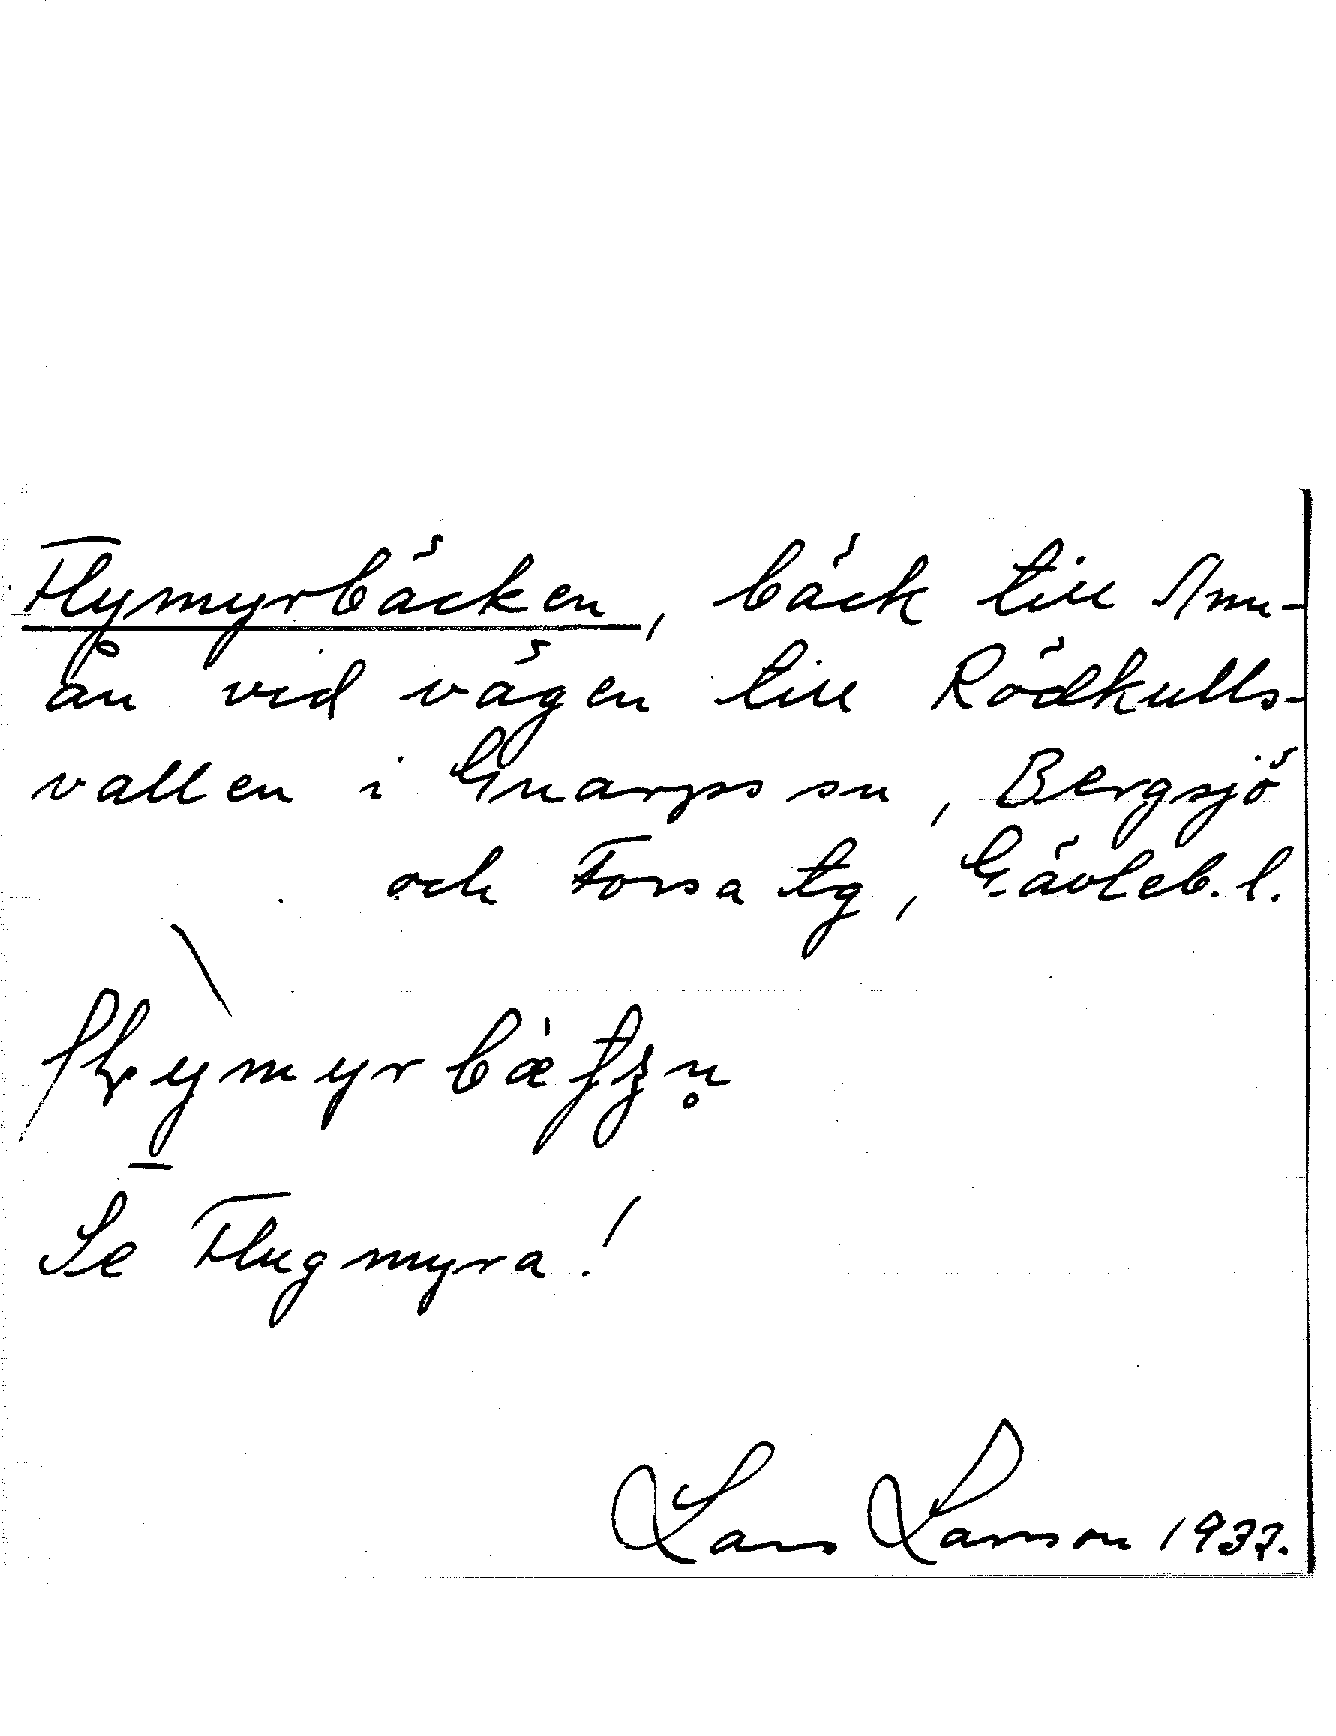 Flymyrbäcken, bäck till Annu-
ån vid vägen till Rödkulls-
vallen i Gnarps sn, Bergsjö
och Forsa tg, Gävleb. l.
Se Flugmyra!
Lars Larsson 1937.